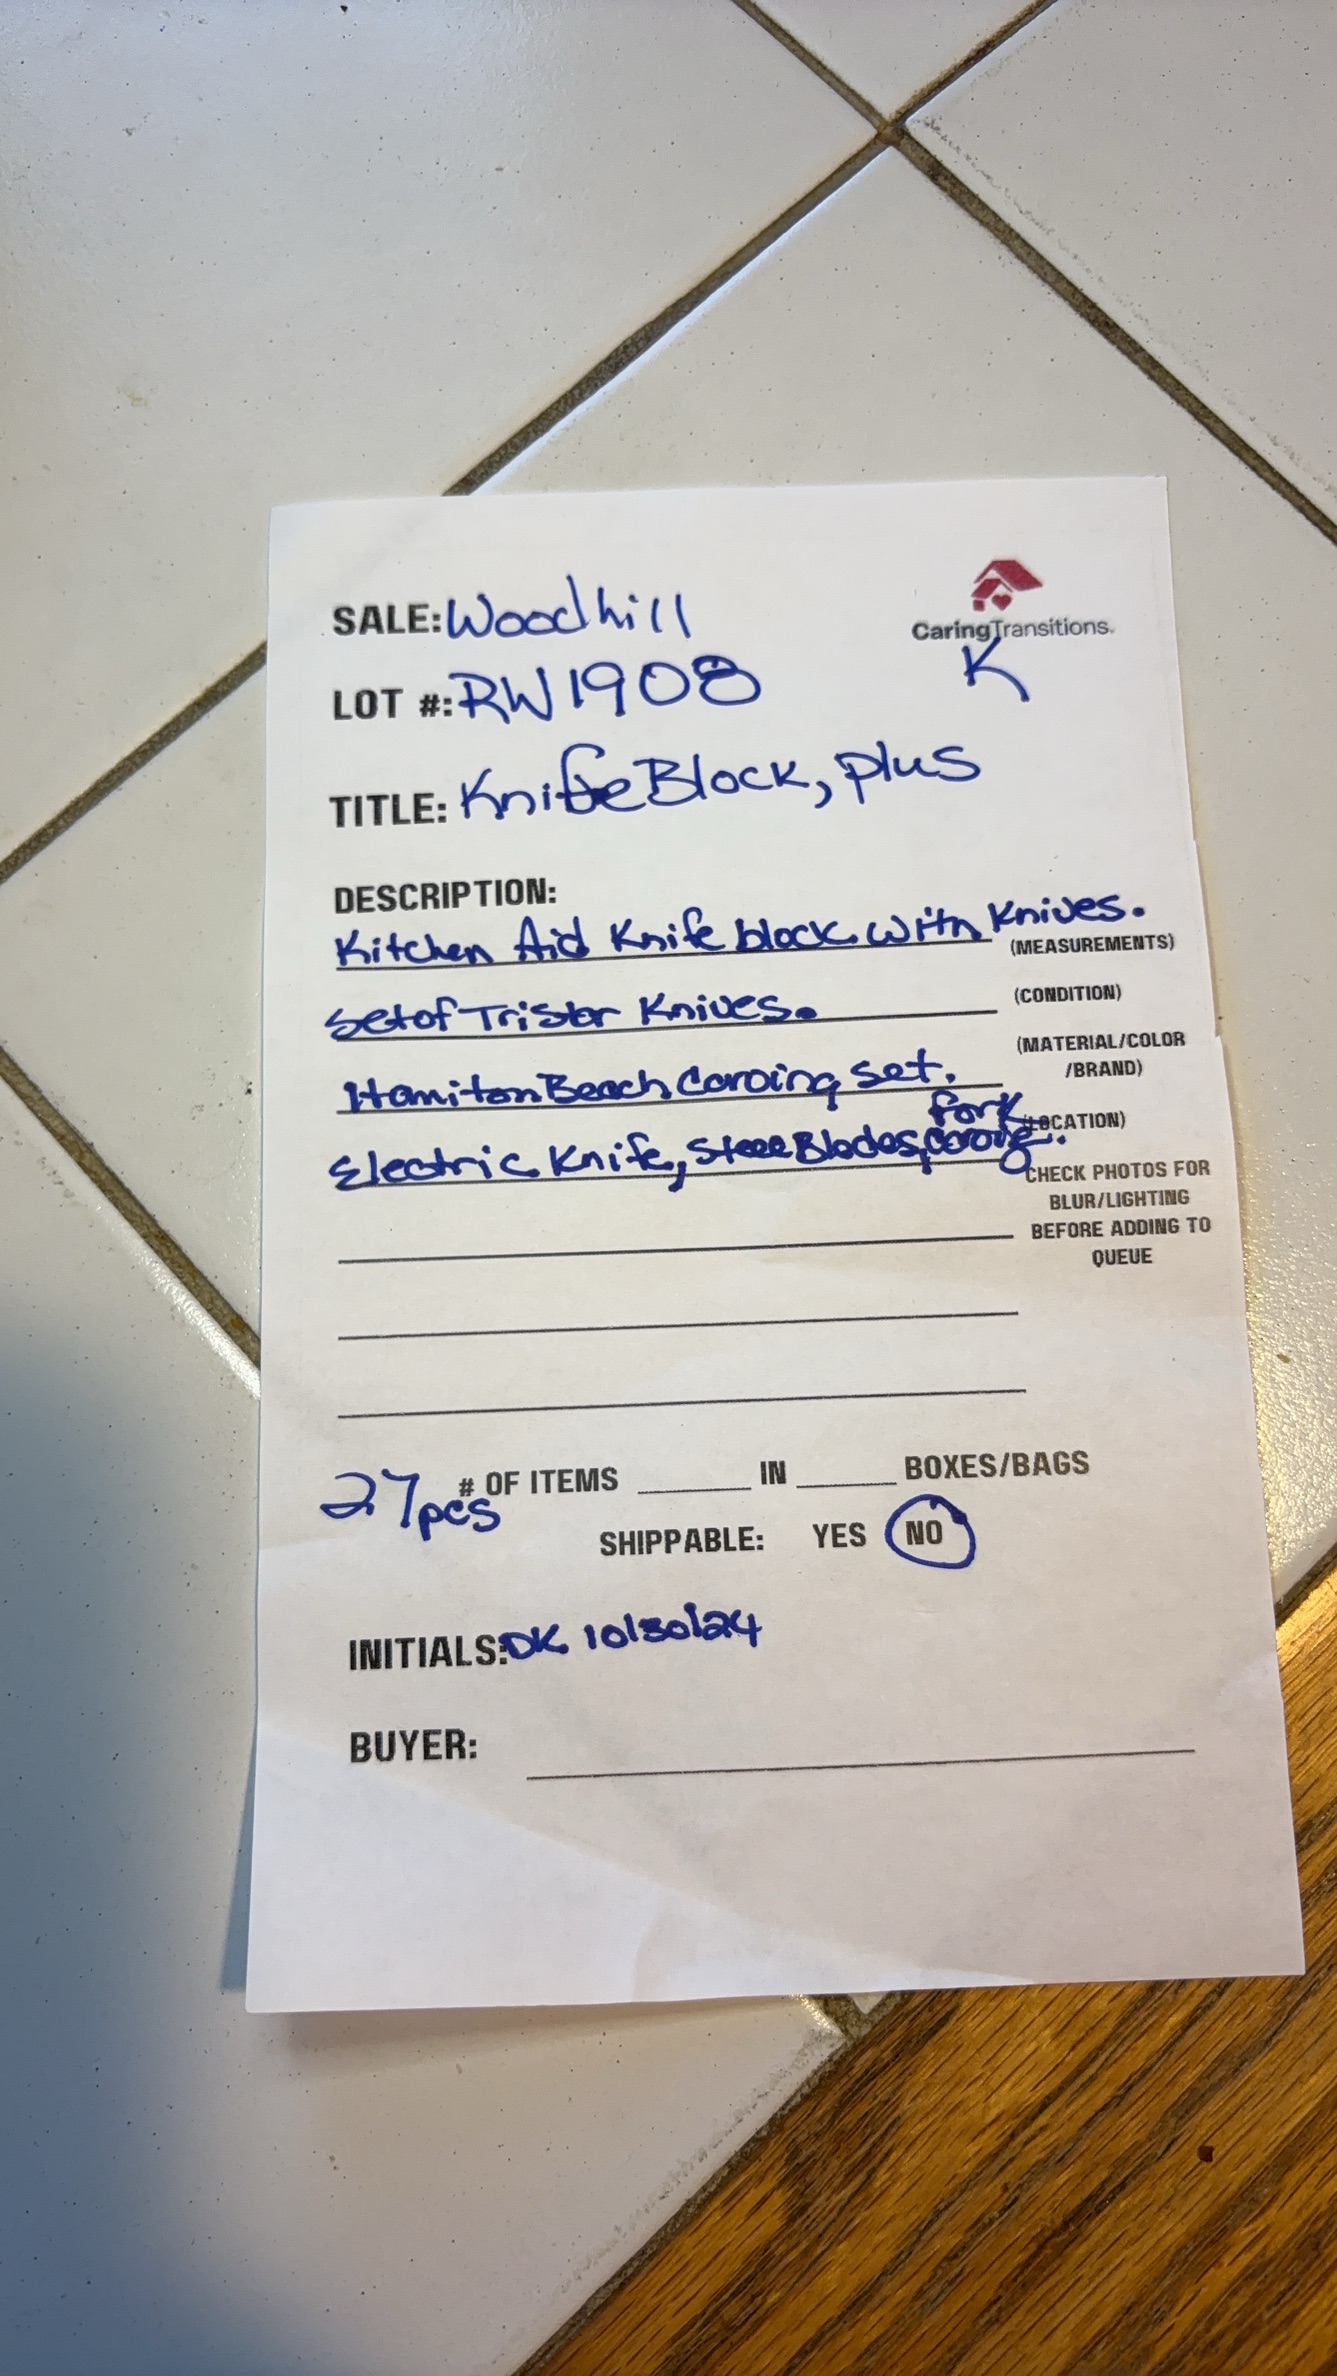 SALE: Woodhill
CaringTransitions.
K
LOT #: RW1908
TITLE: Knife Block, plus
DESCRIPTION:
Kitchen Aid Knife block with Knives.
(MEASUREMENTS)
set of Tristar Knives.
(CONDITION)
(MATERIAL/COLOR
/BRAND)
Hamiton Beach Carving set.
fork
(LOCATION)
Electric Knife, Steel Blades, carving.
CHECK PHOTOS FOR
BLUR/LIGHTING
BEFORE ADDING TO
QUEUE
27pcs # OF ITEMS ______ IN ______ BOXES/BAGS
SHIPPABLE: YES NO
INITIALS: DK 10/30/24
BUYER: